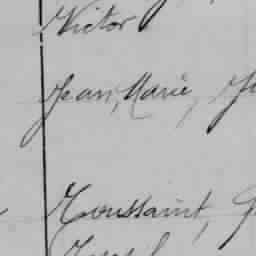 Victor
Jean, Marie,
Toussaint,